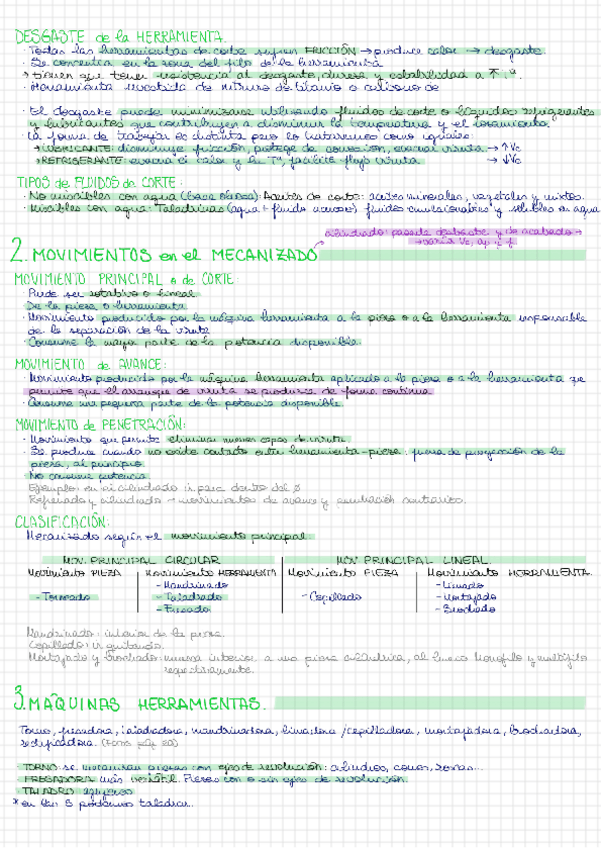 DESGASTE de la HERRAMIENTA.
· Todas las herramientas de corte sufren FRICCIÓN → produce calor → desgaste.
· Se concentra en la zona del filo de la herramienta
→ tienen que tener resistencia al desgaste, dureza y estabilidad a ↑ Tª.
· Herramienta recubierta de nitruro de titanio o carburo de
· El desgaste puede minimizarse utilizando fluidos de corte o líquidos refrigerantes
y lubricantes que contribuyen a disminuir la temperatura y el rozamiento.
La forma de trabajar es distinta pero los trataremos como iguales:
→ LUBRICANTE: disminuye fricción, protege de corrosión, evacua viruta → ↑ Vc
→ REFRIGERANTE: evacua el calor y la Tª, facilita flujo viruta → ↓ Vc
TIPOS de FLUIDOS de CORTE:
· No miscibles con agua (base oleosa): Aceites de corte: aceites minerales, vegetales y mixtos.
· Miscibles con agua: Taladrinas (agua + fluido acuoso) fluidos emulsionables y solubles en agua
cilindrado: pasada desbaste y de acabado →
→ varía Vc, ap, f
2. MOVIMIENTOS en el MECANIZADO
MOVIMIENTO PRINCIPAL o de CORTE
Puede ser rotativo o lineal
De la pieza o herramienta
· Movimiento producido por la máquina herramienta a la pieza o a la herramienta responsable
de la separación de la viruta
· Consume la mayor parte de la potencia disponible.
MOVIMIENTO de AVANCE:
· Movimiento producido por la máquina herramienta aplicado a la pieza o a la herramienta que
permite que el arranque de viruta se produzca de forma continua
· Consume una pequeña parte de la potencia disponible
MOVIMIENTO de PENETRACIÓN:
· Movimiento que permite eliminar nuevas capas de viruta.
· Se produce cuando no existe contacto entre herramienta-pieza: fuera de proyección de la
pieza, al principio
· No consume potencia
Ejemplo: en el cilindrado ir para dentro del ø
Refrentado y cilindrado → movimientos de avance y penetración contrarios.
CLASIFICACIÓN:
Mecanizado según el movimiento principal
MOV. PRINCIPAL CIRCULAR MOV. PRINCIPAL LINEAL
Movimiento PIEZA Movimiento HERRAMIENTA Movimiento PIEZA Movimiento HERRAMIENTA.
- Mandrinado - Limado
- Torneado - Taladrado - Cepillado - Mortajado
- Fresado - Brochado
Mandrinado: interior de la pieza.
Cepillado: ir quitando.
Mortajado y Brochado: ranura interior a una pieza cilíndrica, al hueco. Monofilo y multifilo
respectivamente.
3. MÁQUINAS HERRAMIENTAS.
Torno, fresadora, taladradora, mandrinadora, limadora/cepilladora, mortajadora, brochadora,
rectificadora.
- TORNO: se mecanizan piezas con ejes de revolución: cilindros, conos, roscas...
- FRESADORA más versátil. Piezas con o sin ejes de revolución.
- TALADRO agujeros
* en las 3 podemos taladrar...